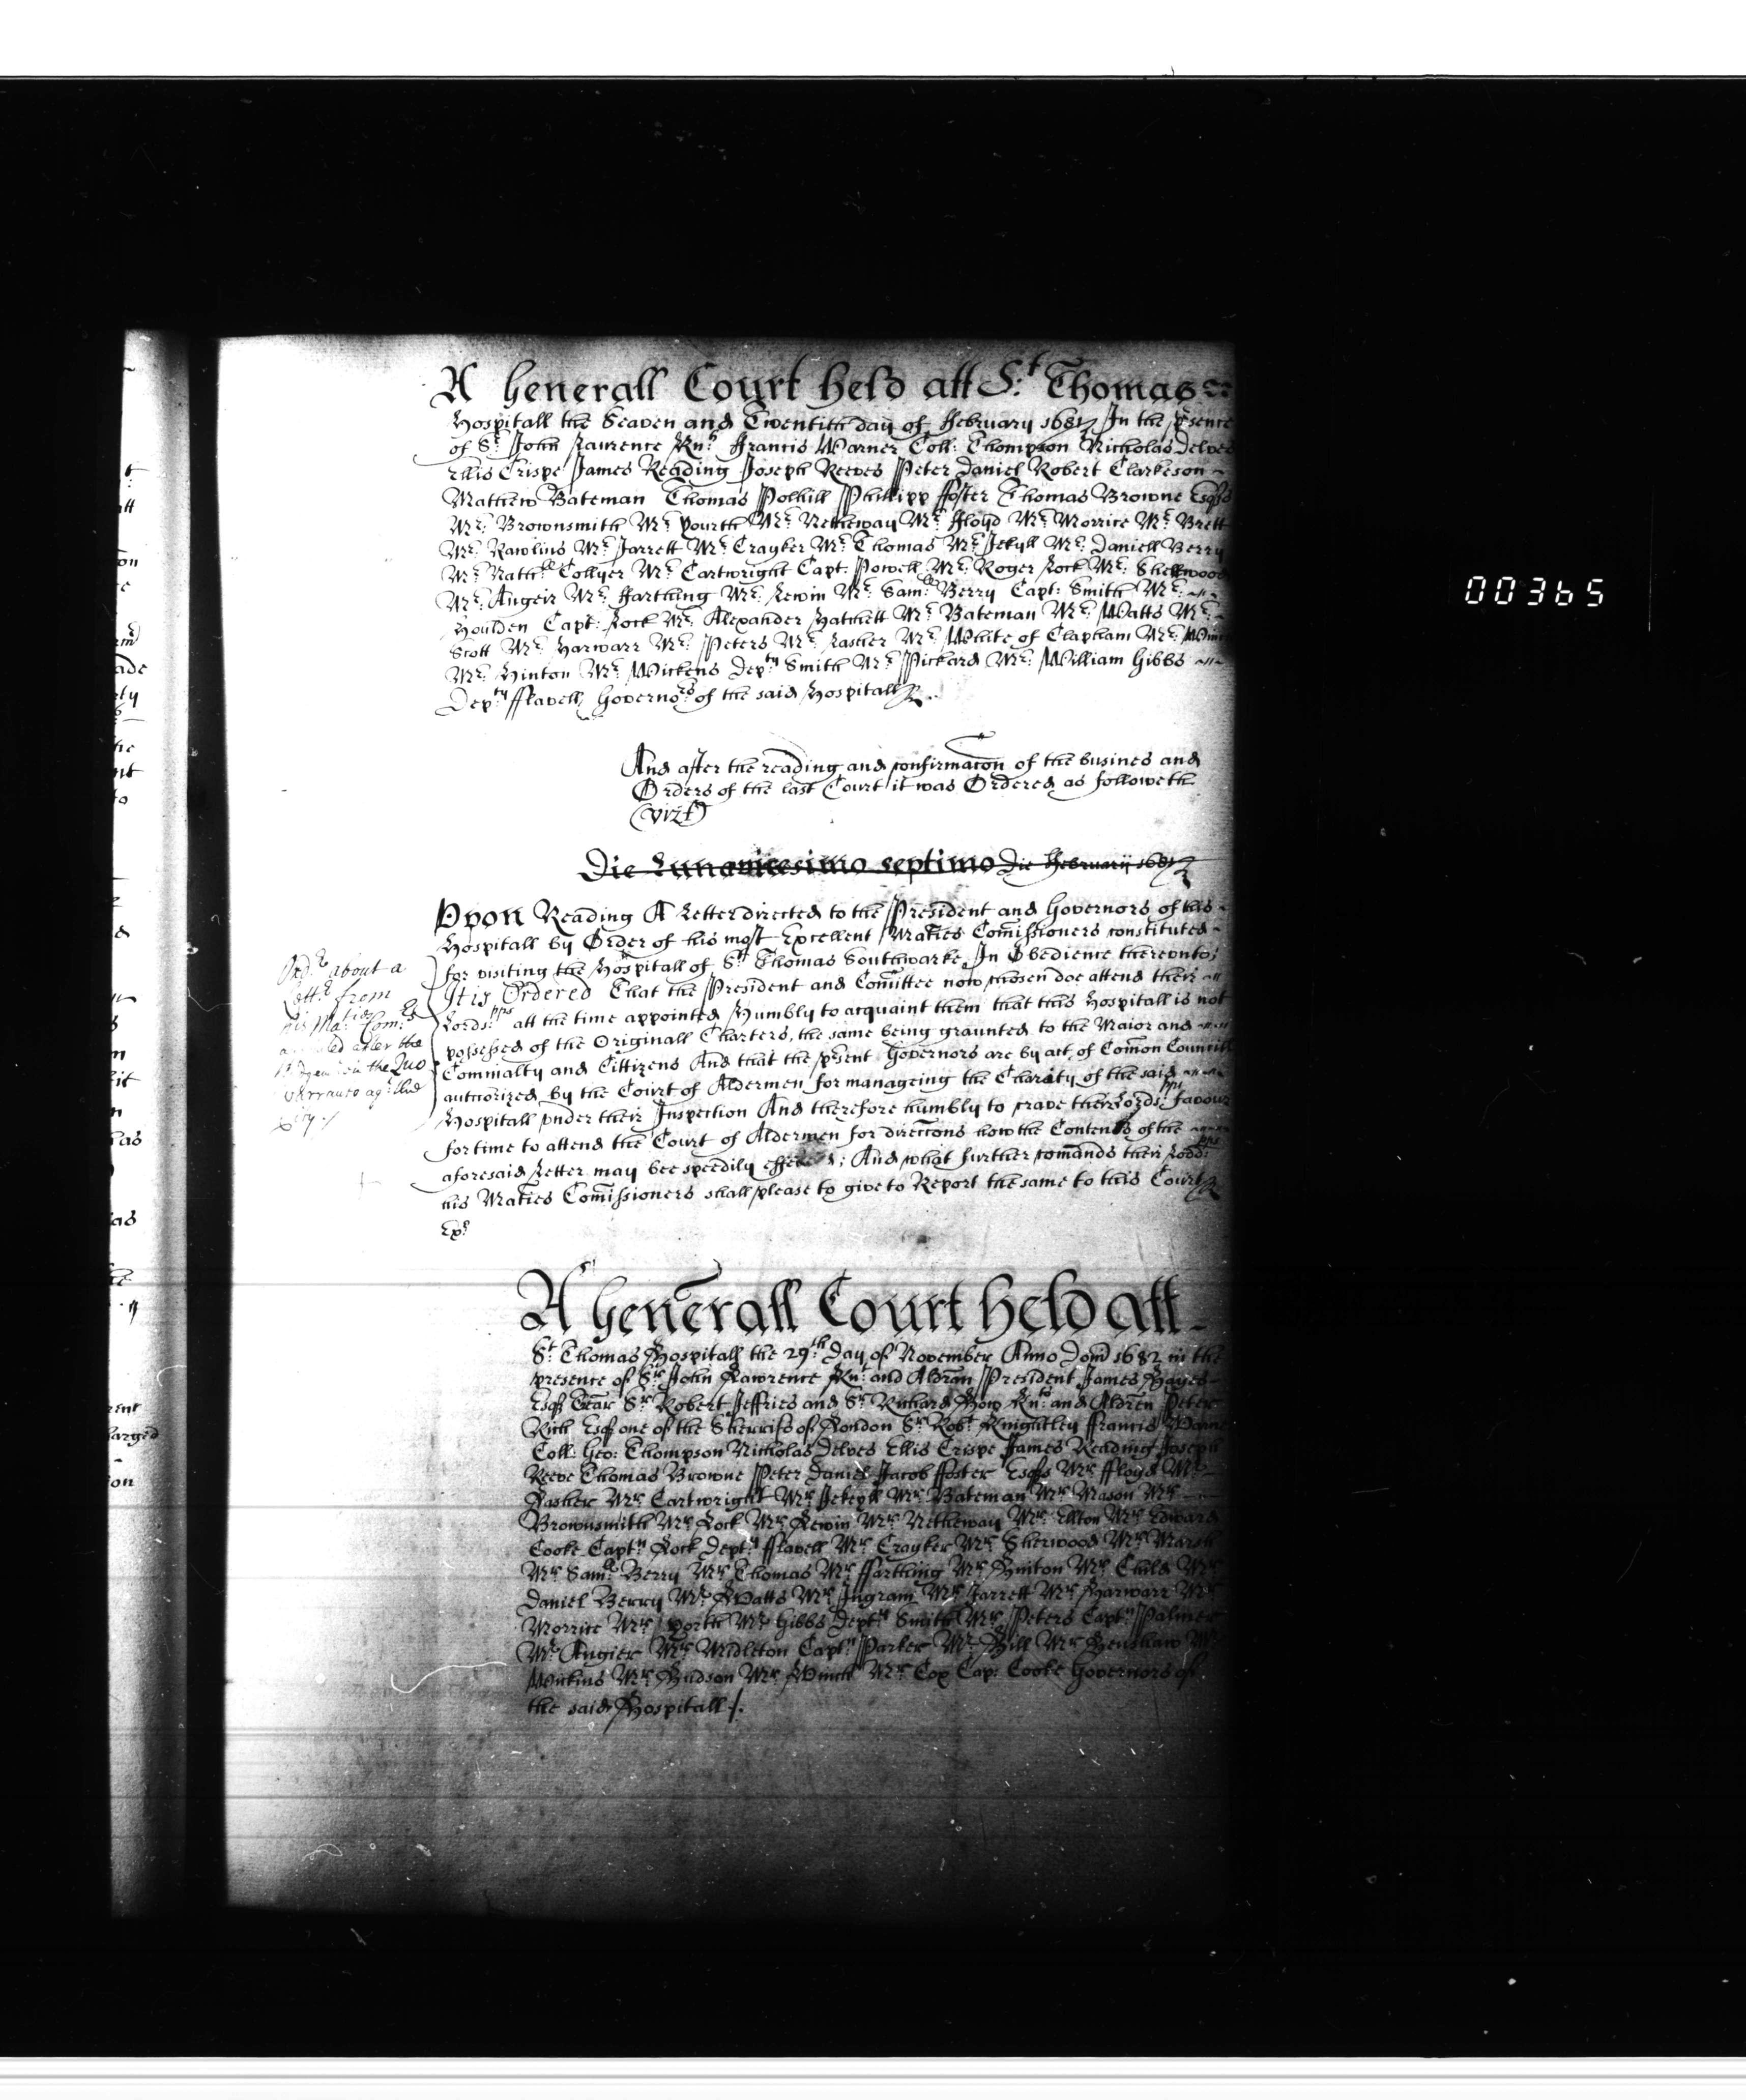 A Generall Court held att St: Thomas
Hospitall the Seaven and Twentith day of February 1681/2 In the psence
of Sr. John Lawrence Knt. Francis Warner Coll: Thompson Nicholas Delves
Ellis Crispe James Reading Joseph Reeves Peter Daniel Robert Clarkeson
Matthew Bateman Thomas Polhill Phillipp ffoster Thomas Browne Esqrs
Mr. Brownsmith Mr. Yourth Mr. Netheway Mr. ffloyd Mr. Morrice Mr. Brett
Mr. Rawlins Mr. Jarrett Mr. Crayker Mr. Thomas Mr. Jekyll Mr. Daniell Berry
Mr. Nathll Collyer Mr. Cartwright Capt: Powell Mr. Roger Lock Mr. Shellwood
Mr. Angeir Mr. ffarthing Mr. Lewin Mr. Samll Berry Capt: Smith Mr.
Houlden Capt: Lock Mr. Alexander Hatchett Mr. Bateman Mr. Watts Mr.
Scott Mr. Harwarr Mr. Peters Mr. Lasher Mr. White of Clapham Mr.
Mr. Hinton Mr. Wickens Depty Smith Mr. Pickard Mr. William Gibbs
Depty fflavell Governors of the said Hospitall
And after the reading and confirmacon of the busines and
Orders of the last Court it was Ordered as followeth
(vizt)
Die Lunae vicesimo septimo Die February 1681/2
Upon Reading A Letter directed to the President and Governors of this
Hospitall by Order of his most Excellent Maties Comissioners constituted
for visiting the Hospitall of St. Thomas Southwarke In Obedience thereunto
It is Ordered That the President and Comittee now chosen doe attend their
Lordspps att the time appointed Humbly to acquaint them that this Hospitall is not
possessed of the Originall Charters, the same being graunted to the Maior and
Commialty and Cittizens And that the psent Governors are by act of Comon Councill
authorized by the Court of Aldermen for manageing the Charity of the said
Hospitall under their Inspection And therefore humbly to crave their Lordspps favour
for time to attend the Court of Aldermen for direccons how the Contents of the
aforesaid Letter may bee speedily effected; And what further comands their Lordpps
his Maties Comissioners shall please to give to Report the same to this Court
Exr
Ordr about a
Lettr from
his Maties Comrs
after the
in the Quo
Warranto agt the
City./
A Generall Court held att
St Thomas Hospitall the 29th Day of November Anno Dom 1682 in the
presence of Sr. John Lawrence Knt. and Aldran President James Hayes
Esqr Trear Sr. Robert Jeffries and Sr. Richard How Knts and Aldren Peter
Rich Esqr one of the Sherrifs of London Sr. Robt. Knightley Francis Warner
Coll: Geo: Thompson Nicholas Delves Ellis Crispe James Reading Joseph
Reeve Thomas Browne Peter Daniel Jacob ffoster Esqrs Mr. ffloyd Mr.
Lasher Mr. Cartwright Mr. Jekeyll Mr. Bateman Mr. Mason Mr.
Brownsmith Mr. Lock Mr. Lewin Mr. Netheway Mr. Elton Mr. Edward
Cooke Captn Lock Deptn fflavell Mr. Crayker Mr. Sherwood Mr. Marsh
Mr. Samll Berry Mr. Thomas Mr. ffarthing Mr. Hinton Mr. Child Mr.
Daniel Berry Mr. Watts Mr. Ingram Mr. Jarrett Mr. Harwarr Mr.
Morrice Mr. Yorth Mr. Gibbs Depty Smith Mr. Peters Captn Palmer
Mr. Angier Mr. Midleton Captn Parker Mr. Hill Mr. Henshaw Mr.
Wickins Mr. Hudson Mr. Winch Mr. Cox Cap: Cooke Governors of
the said Hospitall /.
00365